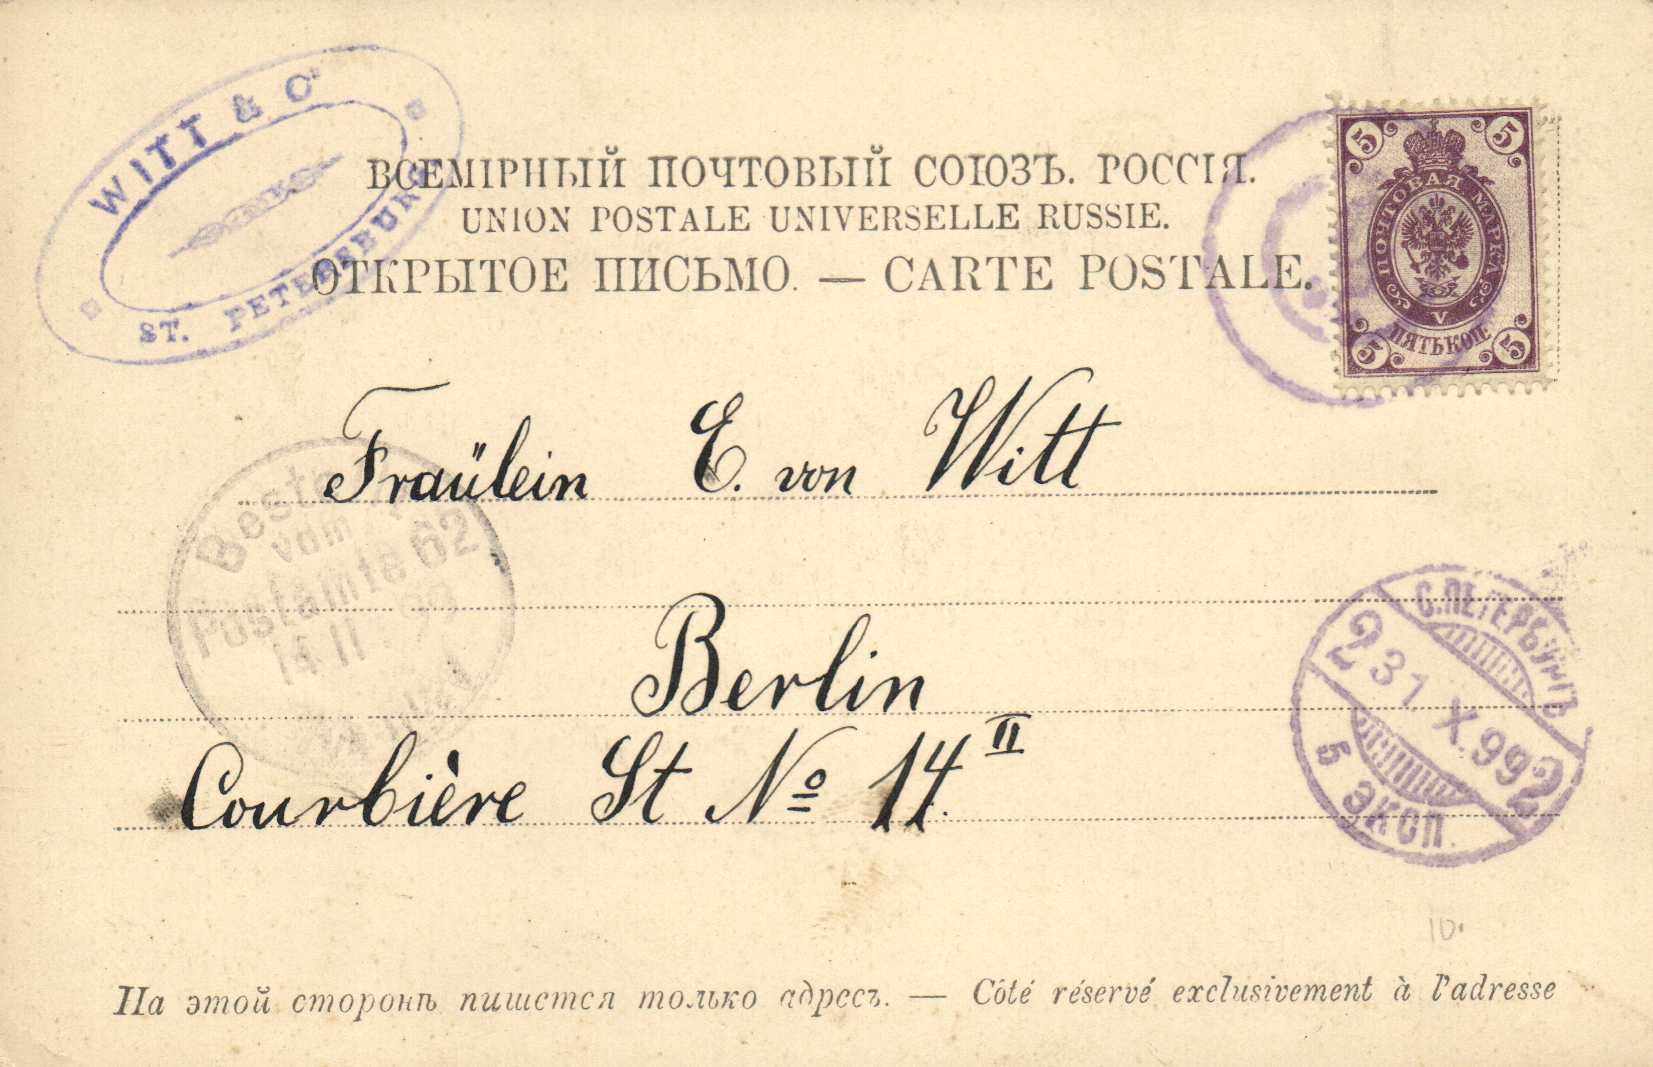 WITT & Cº
ST. PETERSBURG
ВСЕМІРНЫЙ ПОЧТОВЫЙ СОЮЗЪ. РОССІЯ.
UNION POSTALE UNIVERSELLE RUSSIE.
ОТКРЫТОЕ ПИСЬМО. — CARTE POSTALE.
5 5
ПОЧТОВАЯ МАРКА
V
ПЯТЬ КОП.
5 5
Fraülein E. von Witt
Bestellt
vom
Postamte 62
14 11 99
Berlin
Courbière St No 14 II
С.ПЕТЕРБУРГЪ
2 31 X.99 2
5 ЭКСП.
10.
На этой сторонѣ пишется только адресъ. — Côté réservé exclusivement à l'adresse